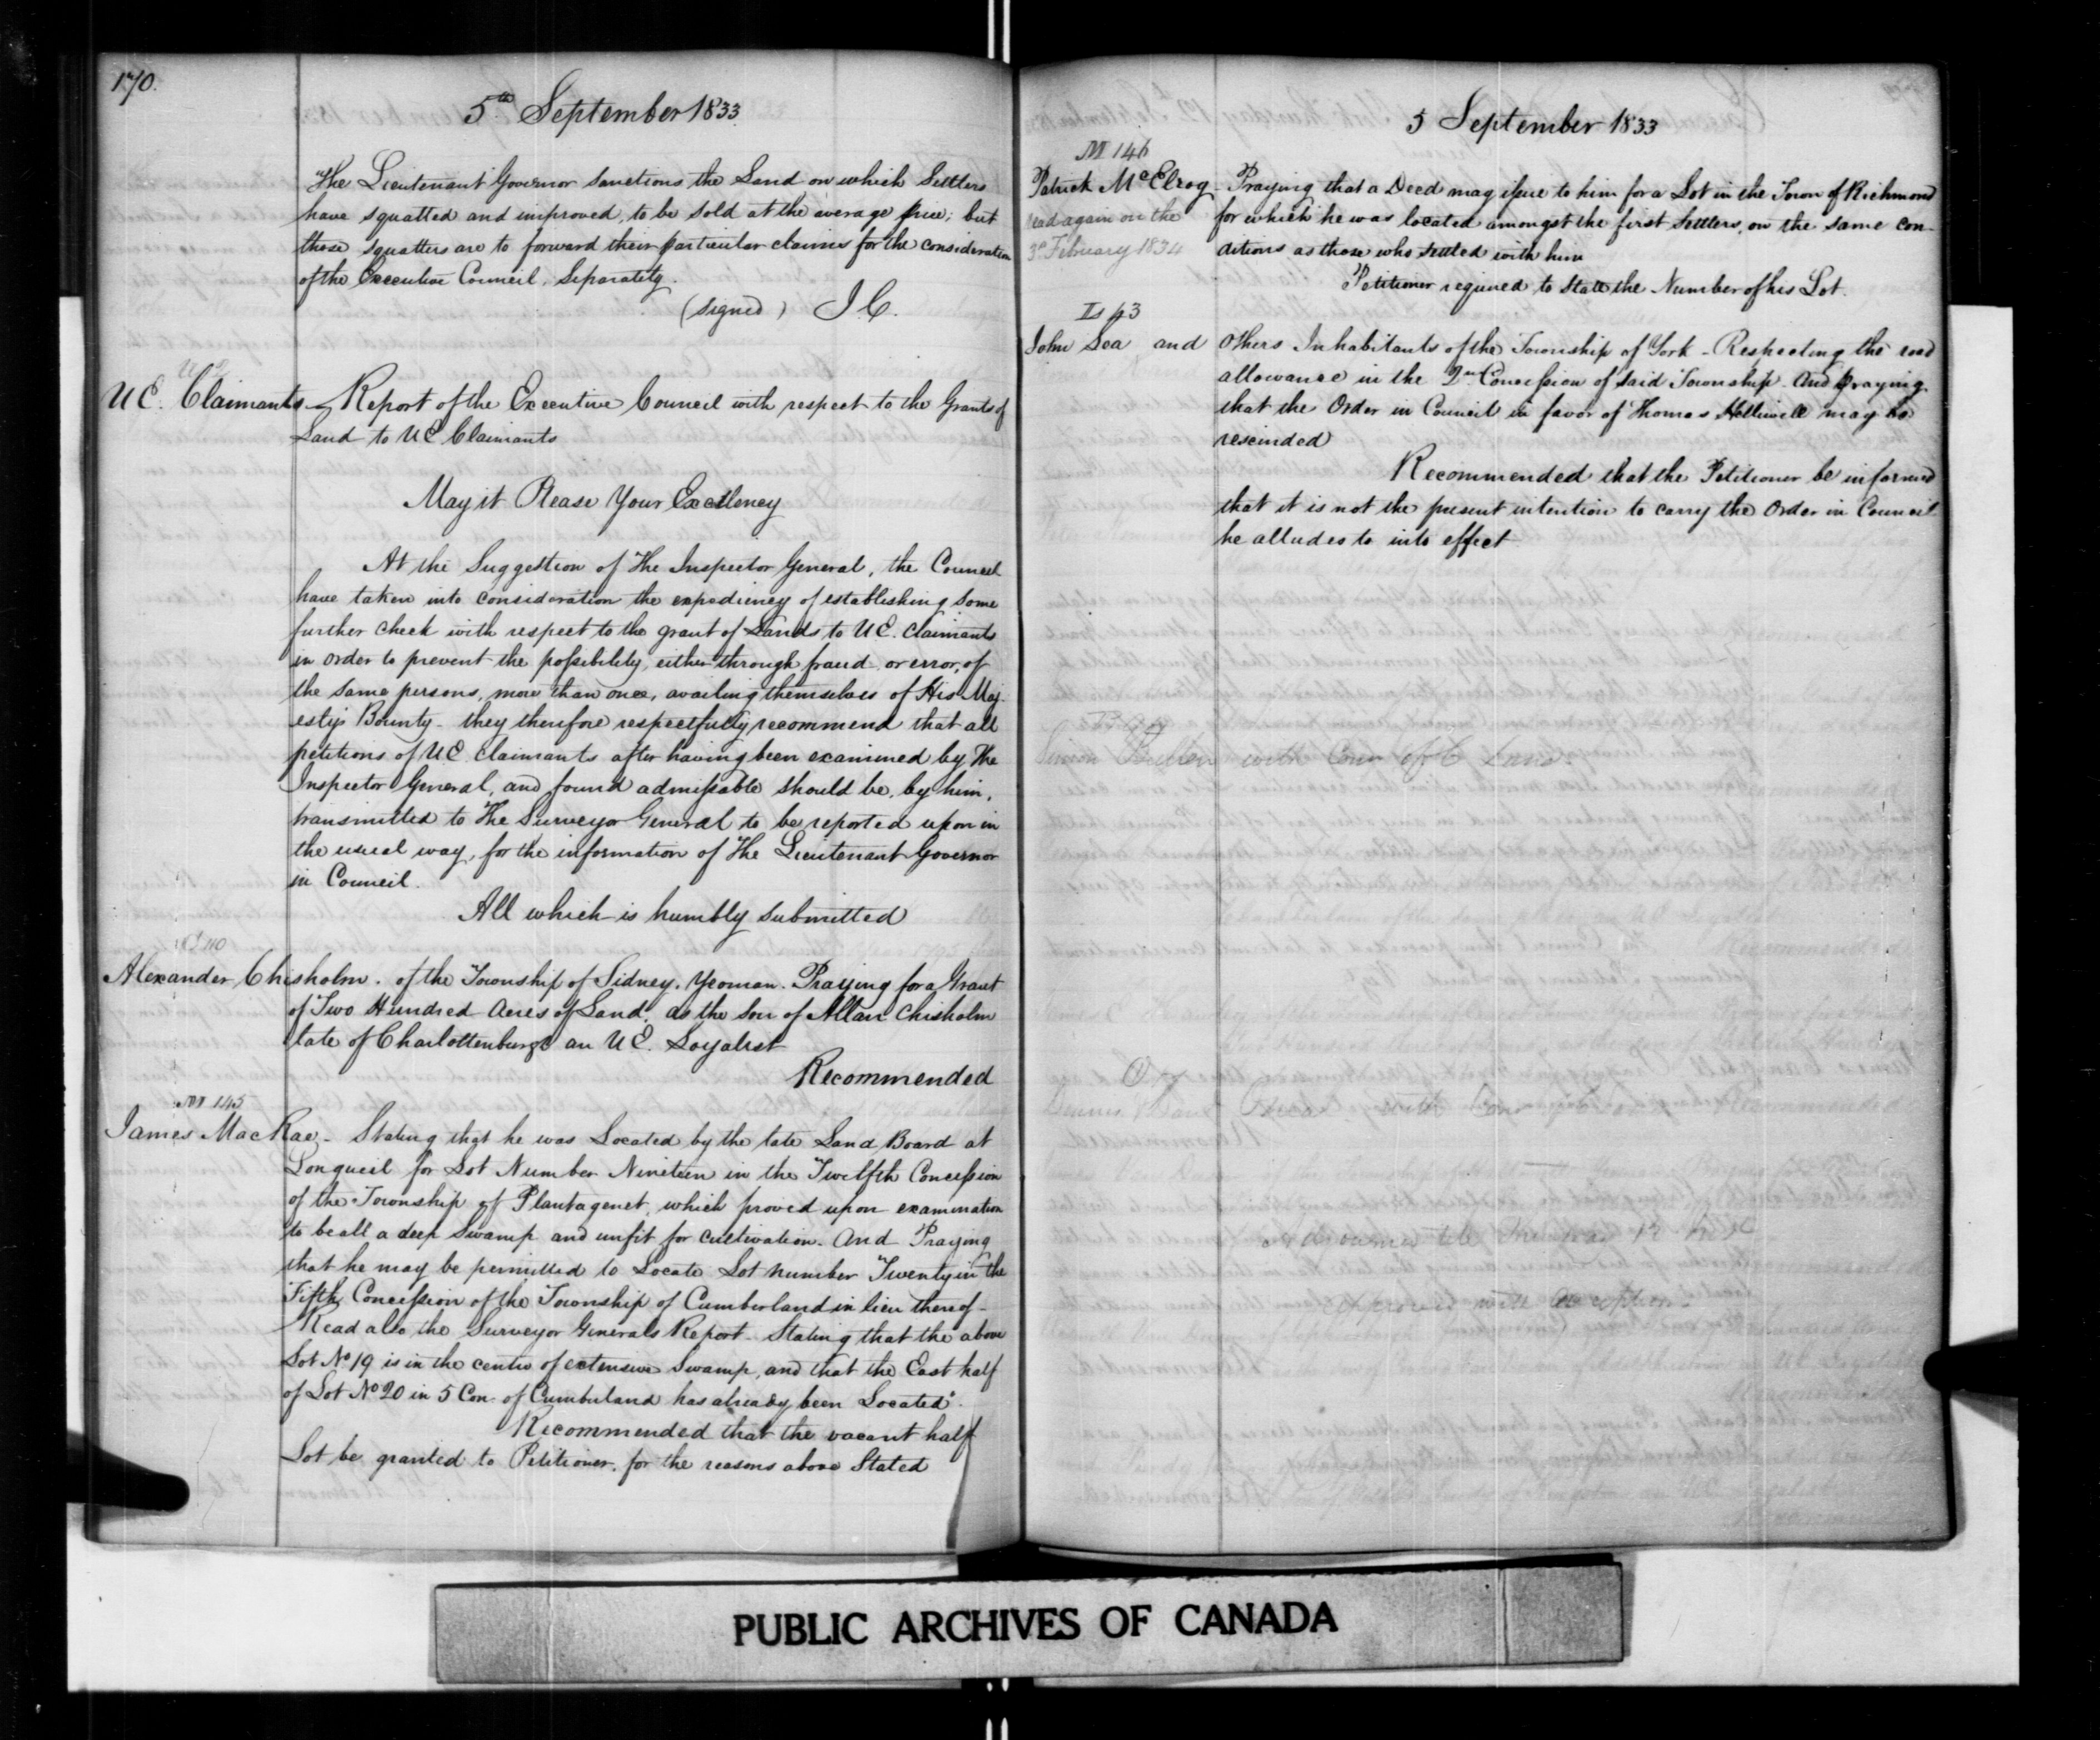 170.
5th September 1833
The Lieutenant Governor sanctions the Land on which Settlers
have squatted and improved, to be sold at the average price; but
those squatters are to forward their particular claims for the consideration
of the Executive Council, Separately.
(signed) J.C.
U.E. Claimants - Report of the Executive Council with respect to the Grants of
Land to UE Claimants
May it Please Your Excellency
At the Suggestion of The Inspector General, the Council
have taken into consideration the expediency of establishing some
further check with respect to the grant of Lands, to U.E. claimants
in order to prevent the possibility, either through fraud, or error, of
the same persons, more than once, availing themselves of His Maj-
esty's Bounty - they therefore respectfully recommend that all
petitions of UE claimants after having been examined by The
Inspector General, and found admissable should be, by him,
transmitted to The Surveyor General to be reported upon in
the usual way, for the information of The Lieutenant Governor
in Council.
All which is humbly submitted
Alexander Chisholm. of the Township of Sidney. Yeoman. Praying for a Grant
of Two Hundred Acres of Land. as the Son of Allan Chisholm
late of Charlottenburgh an U.E. Loyalist
Recommended
M 145
James MacRae - Stating that he was Located by the late Land Board at
Longueil for Lot Number Nineteen in the Twelfth Concession
of the Township of Plantagenet, which proved upon examination
to be all a deep Swamp and unfit for cultivation. And Praying
that he may be permitted to Locate Lot number Twenty in the
Fifth Concession of the Township of Cumberland in lieu thereof -
Read also the Surveyor Generals Report - Stating that the above
Lot No 19 is in the centre of extensive Swamp, and that the East half
of Lot No 20 in 5 Con. of Cumberland has already been Located".
Recommended that the vacant half
Lot be granted to Petitioner, for the reasons above Stated
5 September 1833
M 146
Patrick McElroy - Praying that a Deed may issue to him for a Lot in the Town of Richmond
read again on the for which he was located amongst the first Settlers, on the same con-
3d February 1834 ditions as those who settled with him
Petitioner required to State the Number of his Lot.
John Sea and others Inhabitants of the Township of York - Respecting the road
allowance in the 2nd Concession of said Township. And praying
that the Order in Council in favor of Thomas Helliwell may be
rescinded
Recommended that the Petitioner be informed
that it is not the present intention to carry the Order in Council
he alludes to into effect
PUBLIC ARCHIVES OF CANADA